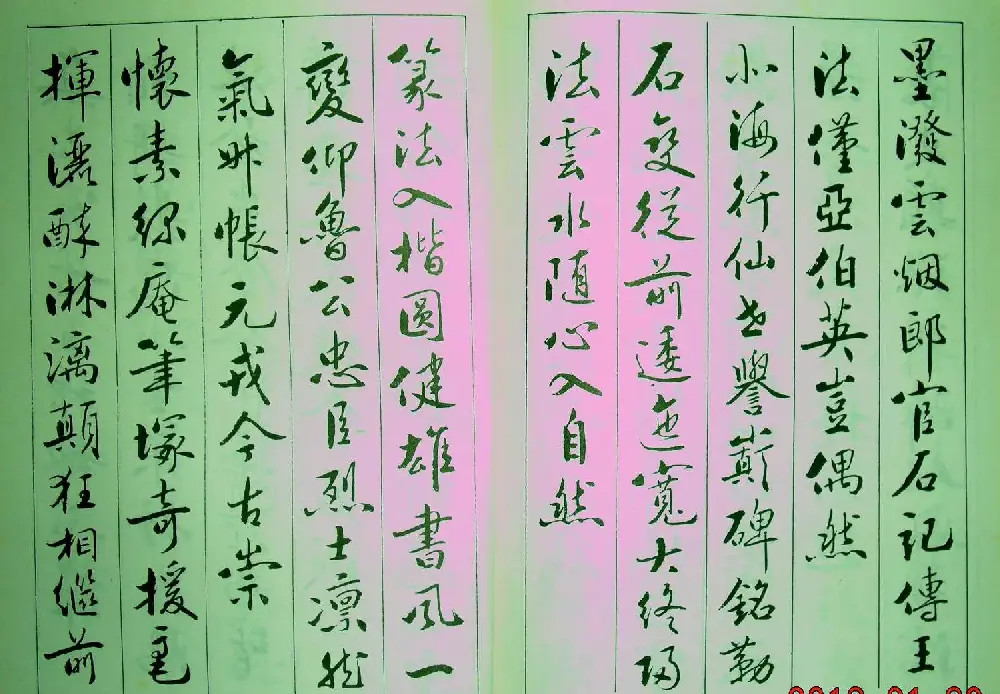 墨潑雲烟郎官石記傳王
法僅亞伯英豈偶然
北海行仙世譽巔碑銘勒
石变從前逶迤寬大終歸
法雲水随心入自然
篆法入楷圓健雄書風一
變仰魯公忠臣烈士凛然
氣升帳元戎今古崇
懷素綠庵筆塚奇援毫
揮灑酥淋漓顛狂相繼前